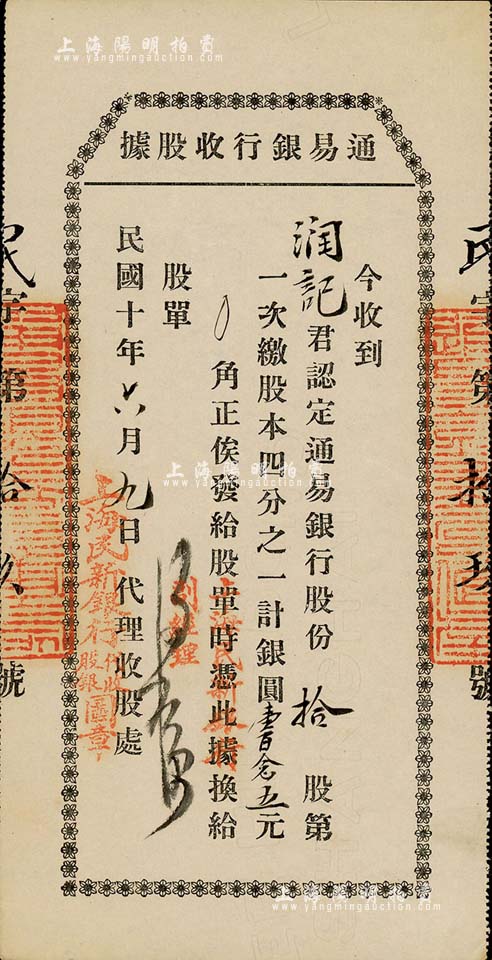 上海陽明拍賣
www.yangmingauction.com
通易銀行收股據
今收到
潤記君認定通易銀行股份拾股第
一次繳股本四分之一計銀圓壹百念五元
角正俟發給股單時憑此據換給
股單
民國十年六月九日 代理收股處
上海民新銀行代收股銀圖章
民字第拾玖號
上海陽明拍賣
www.yangmingauction.com
上海陽明拍賣
www.yangmingauction.com